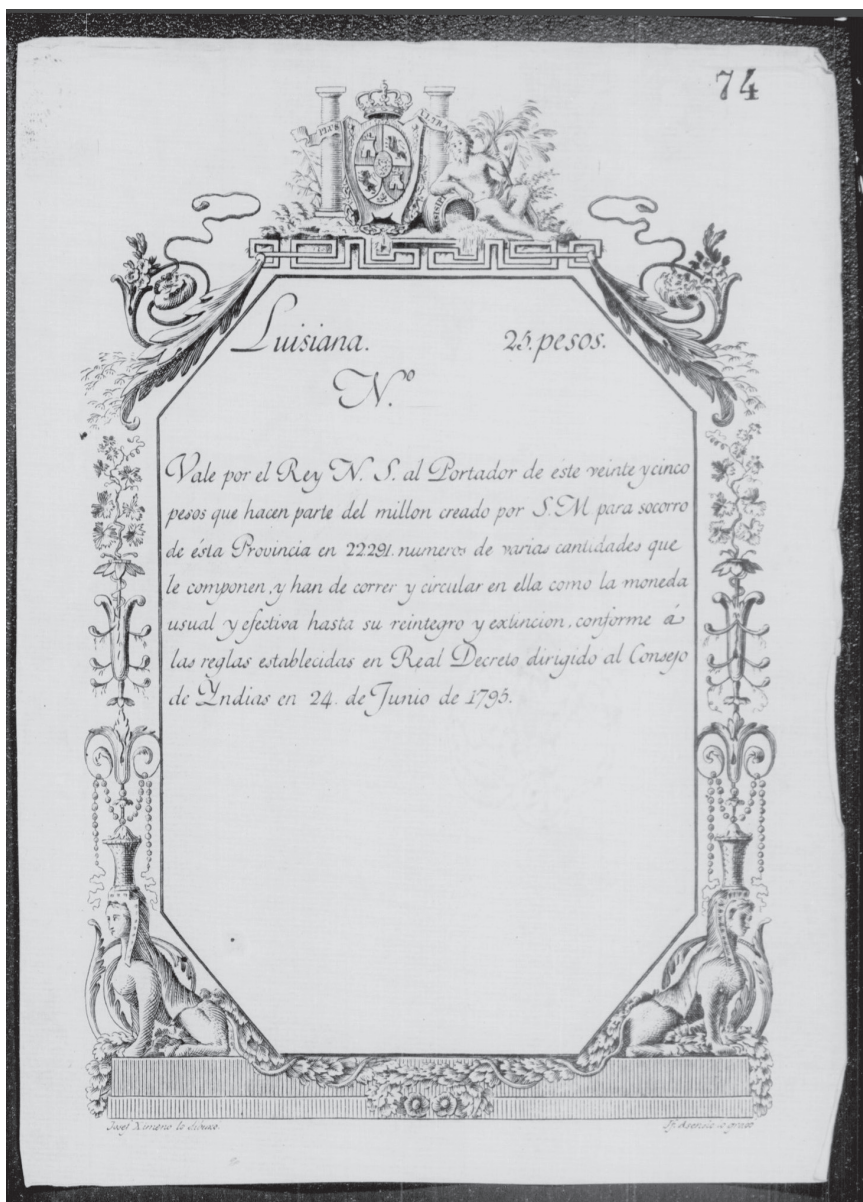 74
PLUS ULTRA
Luisiana. 25. pesos.
N.º
Vale por el Rey N. S. al Portador de este veinte y cinco
pesos que hacen parte del millon creado por S. M. para socorro
de ésta Provincia en 22291. numeros de varias cantidades que
le componen, y han de correr y circular en ella como la moneda
usual y efectiva hasta su reintegro y extincion, conforme á
las reglas establecidas en Real Decreto dirigido al Consejo
de Yndias en 24. de Junio de 1795.
Josef Ximeno lo dibuxo. Asensio lo gravo